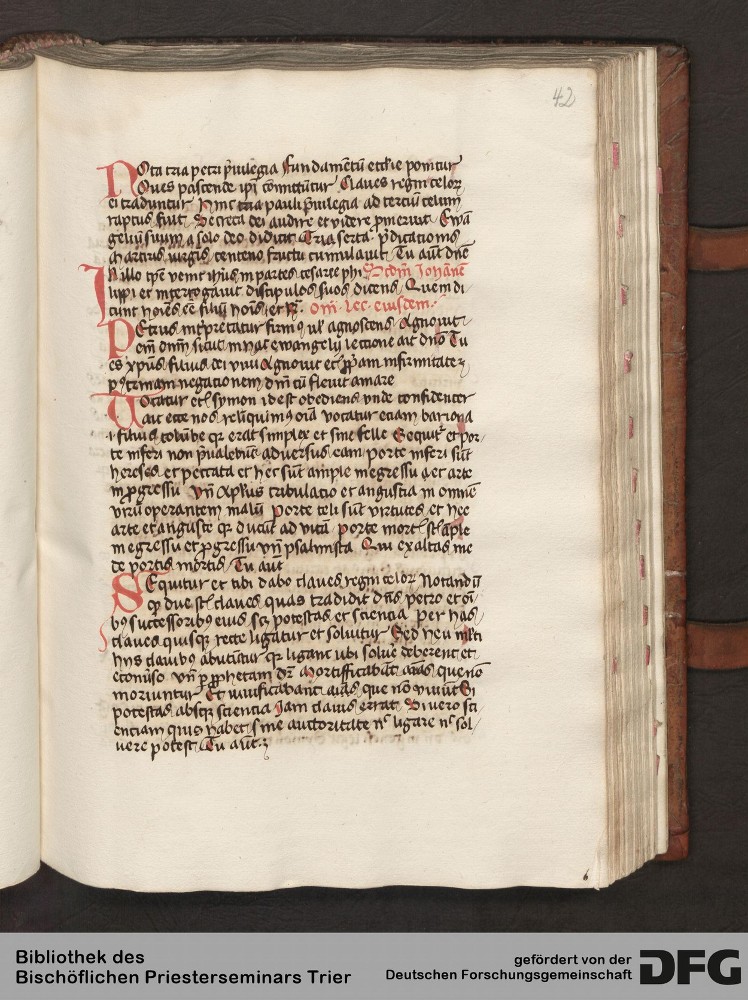 42
Nota tria petri p̄uilegia Fundamētū ecclīe ponitur
Oues pascende ip̄i cōmittūtur Claues regni celorꝫ
ei traduntur hinc tria pauli p̄uilegia ad terciū celum
raptus fuit Secreta dei audire et videre p̄meruit Ewā
geliū suum a solo deo didicit Tria serta p̄dicationis
martirii virgis centeno fructu cumulauit Tu aūt dn̄e
In illo tp̄e venit ih̄us in partes cesaree phi Scdm̄ Johanē
lippi et interrogauit discipulos suos dicens Quem di
cunt hoīes eē filiū hoīs et Rꝫ. Om̄. lec. eiusdem.
Petrus int̄pretatur firmꝰ ul̄ agnoscens Agnouit
em̄ dn̄m sicut in hac ewangelij lectione ait dn̄o Tu
es xp̄us filius dei viui Agnouit et p̄p̄am infirmitatē
pꝰ trinam negationem dn̄i cū fleuit amare
Vocatur et symon id est obediens vnde confidenter
ait ecce nos reliquimꝰ oīa vocatur etiam bariona
.i. filius colūbe qꝛ erat simplex et sine felle Sequit᷑ et por
te inferi non p̄ualebūt aduersus eam porte inferi sūt
hereses et peccata et hec sūt ample in egressu ꝫ et arte
in ꝓgressu vn̄ Ap̄lus tribulacio et angustia in omnē
virū operantem malū porte celi sūt virtutes et hee
arte et anguste qꝛ ducūt ad vitā porte mort̄ st̄ aple
in egressu et ꝓgressu vn̄ psalmista Qui exaltas me
de portis mortis Tu aūt
Sequitur et tibi dabo claues regni celorꝫ Notandū
qꝫ due st̄ claues quas tradidit dn̄s petro et oī
bꝰ successoribꝰ eius scꝫ potestas et sciencia per has
claues quisqꝫ recte ligatur et soluitur Sed heu multi
hiis clauibꝰ abutūtur qꝛ ligant ubi soluē deberent et
econūso vn̄ p ꝓphetam dr̄ Mortifficabāt aīas que nō
moriuntur Et viuificabant aīas que nō viuūt Si
potestas absqꝫ sciencia iam clauis errat Si vero sci
enciam quis habet sine auctoritate nc̄ ligare nc̄ sol
uere potest Tu aūt ꝫ
6
Bibliothek des
Bischöflichen Priesterseminars Trier
gefördert von der
Deutschen Forschungsgemeinschaft
DFG